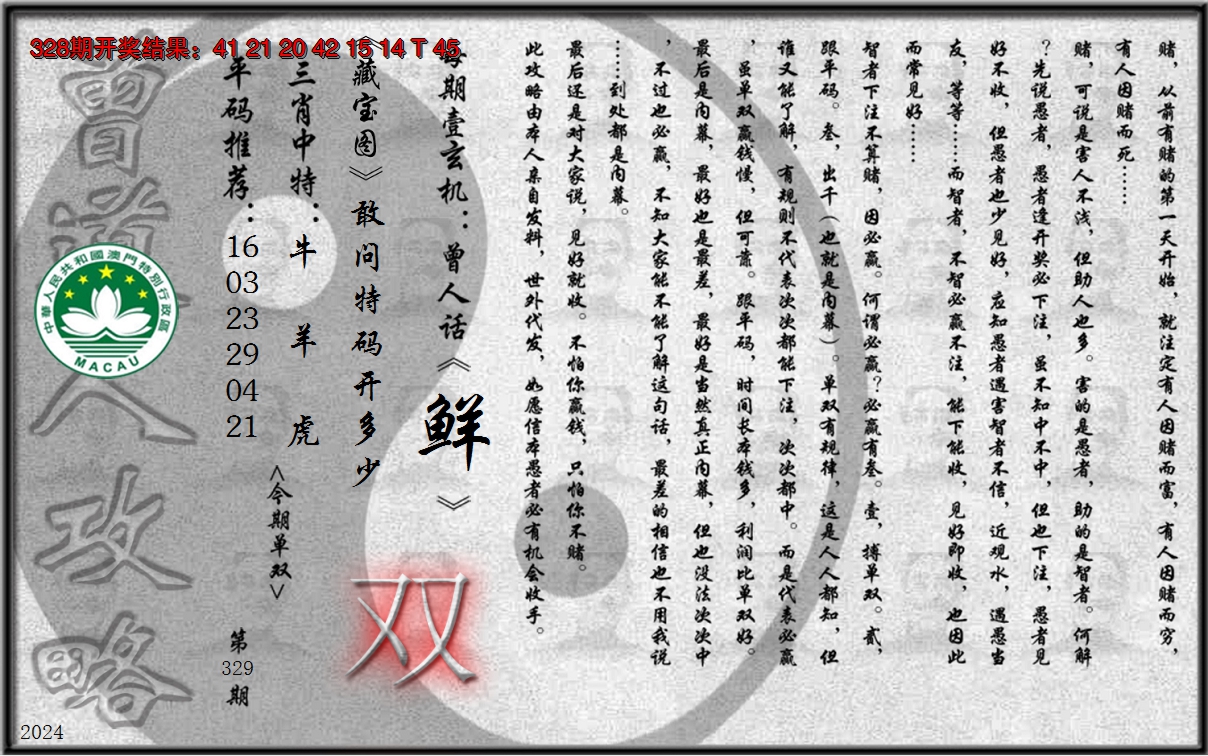 328期开奖结果：41 21 20 42 15 14 T 45
赌，从前有赌的第一天开始，就注定有人因赌而富，有人因赌而穷，
有人因赌而死……
赌，可说是害人不浅，但助人也多。害的是愚者，助的是智者。何解
？先说愚者，愚者逢开奖必下注，虽不知中不中，但也下注，愚者见
好不收，但愚者也少见好，应知愚者遇害智者不信，近观水，遇愚当
友，等等……而智者，不智必赢不注，能下能收，见好即收，也因此
而常见好……
智者下注不算赌，因必赢。何谓必赢？必赢有叁。壹，搏单双。贰，
跟平码。叁，出千（也就是内幕）。单双有规律，这是人人都知，但
谁又能了解，有规则不代表次次都能下注，次次都中。而是代表必赢
，虽单双赢钱慢，但可靠。跟平码，时间长本钱多，利润比单双好。
最后是内幕，最好也是最差，最好是当然真正内幕，但也没法次次中
，不过也必赢，不知大家能不能了解这句话，最差的相信也不用我说
……到处都是内幕。
最后还是对大家说，见好就收。不怕你赢钱，只怕你不赌。
此攻略由本人亲自发料，世外代发，如愿信本愚者必有机会收手。
每期壹玄机：曾人话《鲜》
《藏宝图》敢问特码开多少
双
三肖中特：牛 羊 虎
<今期单双>
平码推荐：
16
03
23
29
04
21
第
329
期
曾道人攻略
中華人民共和國澳門特別行政區
MACAU
2024